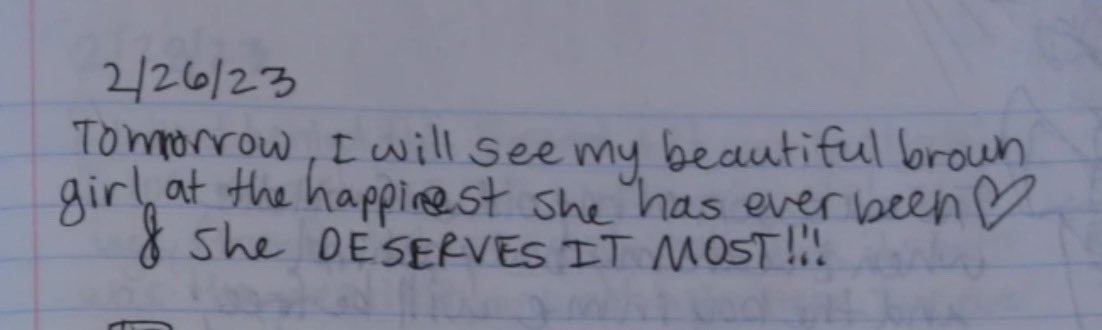 2/26/23
Tomorrow, I will see my beautiful brown
girl at the happinest she has ever been ♡
& she DESERVES IT MOST!!!